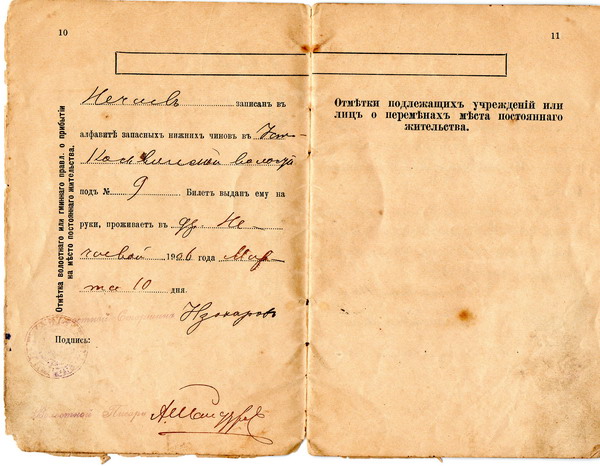 10
Отмѣтка волостнаго или гминнаго правл. о прибытіи
на мѣсто постояннаго жительства.
Нечаевъ записанъ въ
алфавитѣ запасныхъ нижнихъ чиновъ въ
волости
подъ № 9 Билетъ выданъ ему на
руки, проживаетъ въ др. Не-
чаевой 1906 года Мар-
та 10 дня.
Подпись:
11
Отмѣтки подлежащихъ учрежденій или
лицъ о перемѣнахъ мѣста постояннаго
жительства.